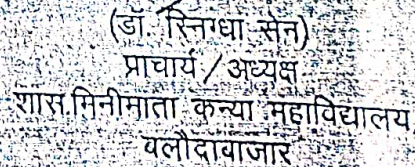 (डॉ. स्निग्धा सेन)
प्राचार्य / अध्यक्ष
शास. मिनीमाता कन्या महाविद्यालय
बलौदाबाजार